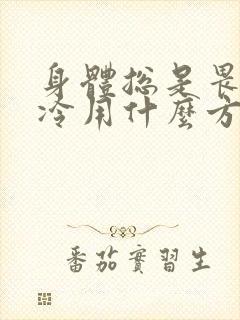 身體總是畏
冷用什麼方
番茄實習生